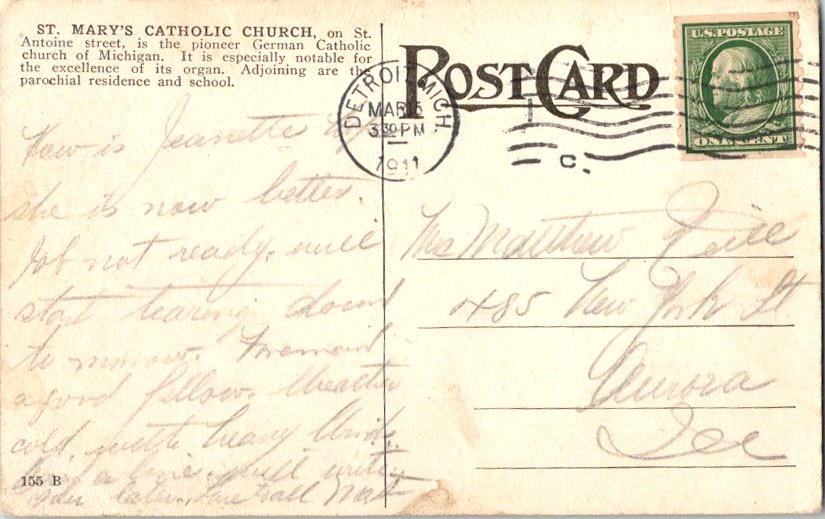 ST. MARY'S CATHOLIC CHURCH, on St.
Antoine street, is the pioneer German Catholic
church of Michigan. It is especially notable for
the excellence of its organ. Adjoining are the
parochial residence and school.
POST CARD
DETROIT, MICH.
MAR 5
3 30 PM
1911
C.
U.S. POSTAGE
ONE CENT
How is Jeanette
she is now better.
Job not ready. will
start tearing down
to morrow. Foreman
a good fellow. Weather
cold, with heavy Winds.
will write
you later.
155 B
Mrs Matthew
485 New York St
Aurora
Ill